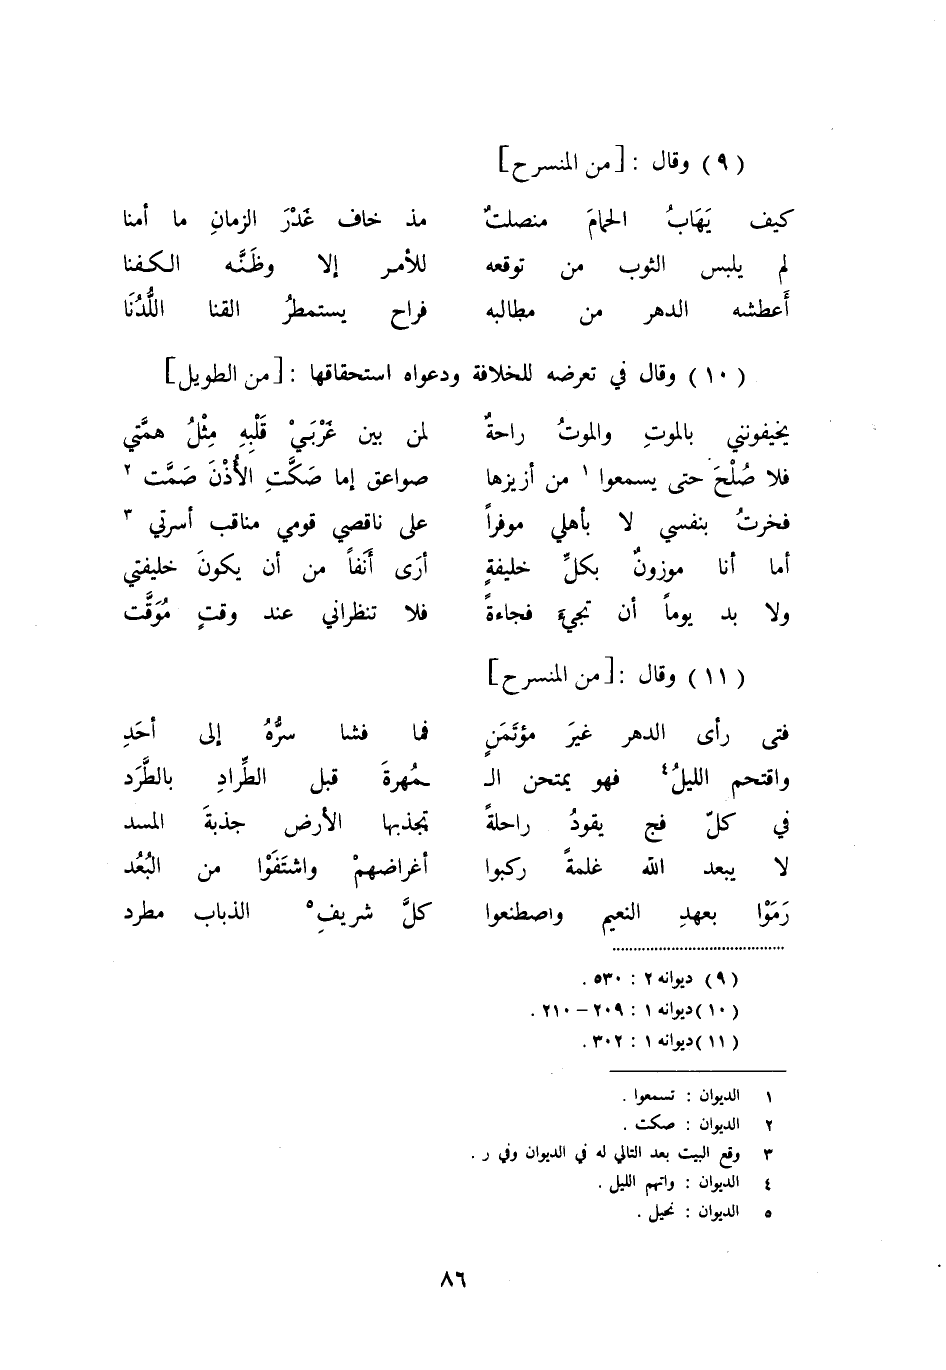 (٩) وقال : [من المنسرح]
كيف يَهَابُ الحمامَ منصلتٌ مذ خاف غَدْرَ الزمانِ ما أمنا
لم يلبس الثوب من توقعه للأمر إلا وظَنَّه الكفنا
أَعطشه الدهر من مطالبه فراح يستمطرُ القنا اللُّدُنَا
(١٠) وقال في تعرضه للخلافة ودعواه استحقاقها : [من الطويل]
يخيفونني بالموتِ والموتُ راحةٌ لمن بين غَرْبَيْ قَلْبِهِ مِثْلُ همَّتي
فلا صُلْحَ حتى يسمعوا ١ من أزيزها صواعق إما صَكَّتِ الأُذْنَ صَمَّت ٢
فخرتُ بنفسي لا بأهلي موفراً على ناقصي قومي مناقب أسرتي ٣
أما أنا موزونٌ بكلِّ خليفةٍ أرَى أَنَفاً من أن يكونَ خليفتي
ولا بد يوماً أن تجيءَ فجاءةً فلا تنظراني عند وقتٍ مُوَقَّت
(١١) وقال : [من المنسرح]
فتى رأى الدهر غيرَ مؤتَمَنٍ فما فشا سرُّهُ إلى أحَدِ
واقتحم الليلُ٤ فهو يمتحن الـ ـمُهرةَ قبل الطِّرادِ بالطَّرَد
في كلّ فج يقودُ راحلةً تجذبها الأرض جذبةَ المسد
لا يبعد الله غلمةً ركبوا أغراضهمْ واشتَفَوْا من البُعُد
رَمَوْا بعهدِ النعيم واصطنعوا كلَّ شريفِ٥ الذباب مطرد
(٩) ديوانه ٢ : ٥٣٠ .
(١٠) ديوانه ١ : ٢٠٩ – ٢١٠ .
(١١) ديوانه ١ : ٣٠٢ .
١ الديوان : تسمعوا .
٢ الديوان : صكت .
٣ وقع البيت بعد التالي له في الديوان وفي ر .
٤ الديوان : واتهم الليل .
٥ الديوان : نحيل .
٨٦